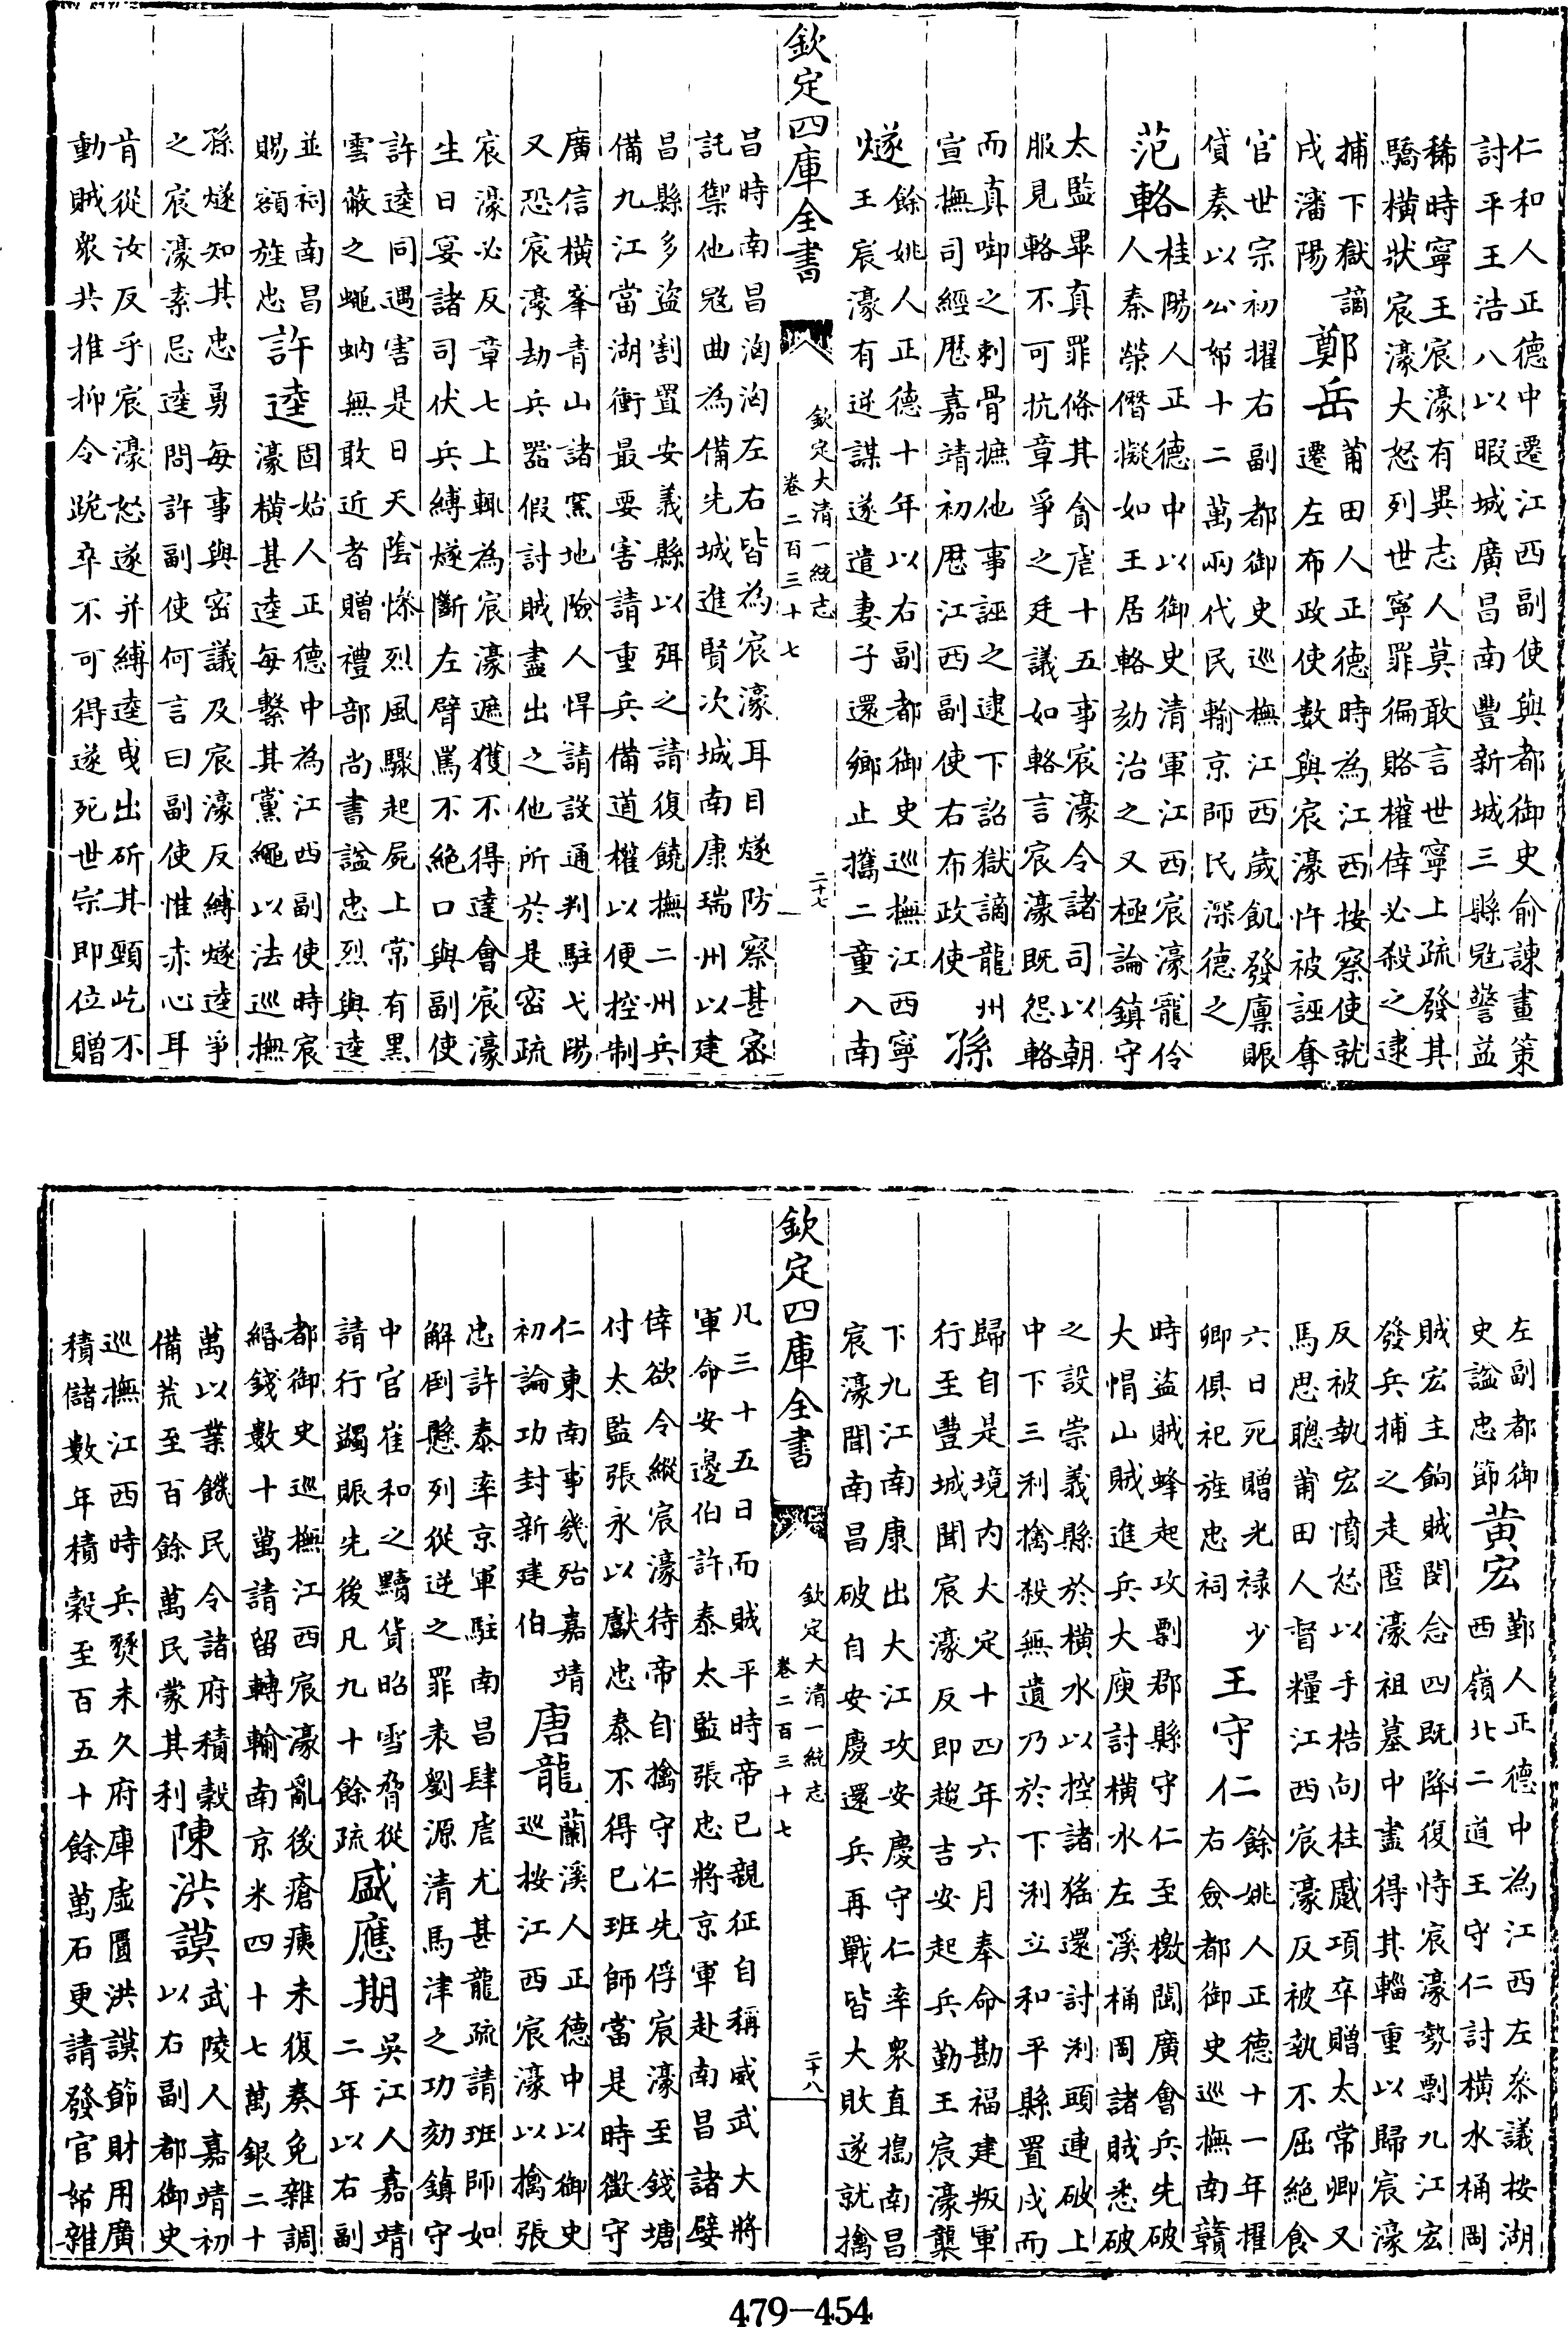 仁和人正德中遷江西副使與都御史俞諫畫策
討平王浩八以暇城廣昌南豐新城三縣冦警益
稀時寧王宸濠有異志人莫敢言世寧上疏發其
驕橫狀宸濠大怒列世寧罪徧賂權倖必殺之逮
捕下獄謫
戍瀋陽
鄭岳
莆田人正德時為江西按察使就
遷左布政使數與宸濠忤被誣奪
官世宗初擢右副都御史巡撫江西歲飢發廩賑
貸奏以公帑十二萬兩代民輸京師民深德之
范輅
桂陽人正德中以御史清軍江西宸濠寵伶
人秦榮僭擬如王居輅劾治之又極論鎮守
太監畢真罪條其貪虐十五事宸濠令諸司以朝
服見輅不可抗章爭之廷議如輅言宸濠既怨輅
而真啣之刺骨摭他事誣之逮下詔獄謫龍州
宣撫司經歷嘉靖初歷江西副使右布政使
孫
燧
餘姚人正德十年以右副都御史巡撫江西寧
王宸濠有逆謀遂遣妻子還鄉止攜二童入南
欽定四庫全書
欽定大清一統志
卷二百三十七
二十七
昌時南昌洶洶左右皆為宸濠耳目燧防察甚密
託禦他冦曲為備先城進賢次城南康瑞州以建
昌縣多盜割置安義縣以弭之請復饒撫二州兵
備九江當湖衝最要害請重兵備道權以便控制
廣信橫峯青山諸窯地險人悍請設通判駐弋陽
又恐宸濠劫兵器假討賊盡出之他所於是密疏
宸濠必反章七上輒為宸濠遮獲不得達會宸濠
生日宴諸司伏兵縛燧斷左臂罵不絕口與副使
許逵同遇害是日天陰慘烈風驟起屍上常有黑
雲蔽之蠅蚋無敢近者贈禮部尚書諡忠烈與逵
並祠南昌
賜額旌忠
許逵
固始人正德中為江西副使時宸
濠橫甚逵每繫其黨繩以法巡撫
孫燧知其忠勇每事與密議及宸濠反縛燧逵爭
之宸濠素忌逵問許副使何言曰副使惟赤心耳
肯從汝反乎宸濠怒遂并縛逵曵出斫其頸屹不
動賊衆共推抑令跪卒不可得遂死世宗即位贈
左副都御
史諡忠節
黃宏
鄞人正德中為江西左叅議按湖
西嶺北二道王守仁討橫水桶岡
賊宏主餉賊閔念四既降復恃宸濠勢剽九江宏
發兵捕之走匿濠祖墓中盡得其輜重以歸宸濠
反被執宏憤怒以手梏向柱慼項卒贈太常卿又
馬思聰莆田人督糧江西宸濠反被執不屈絶食
六日死贈光禄少
卿俱祀旌忠祠
王守仁
餘姚人正德十一年擢
右僉都御史巡撫南贛
時盜賊蜂起攻剽郡縣守仁至檄閩廣會兵先破
大帽山賊進兵大庾討橫水左溪桶岡諸賊悉破
之設崇義縣於橫水以控諸猺還討浰頭連破上
中下三浰擒殺無遺乃於下浰立和平縣置戍而
歸自是境内大定十四年六月奉命勘福建叛軍
行至豐城聞宸濠反即趨吉安起兵勤王宸濠襲
下九江南康出大江攻安慶守仁率衆直搗南昌
宸濠聞南昌破自安慶還兵再戰皆大敗遂就擒
欽定四庫全書
欽定大清一統志
卷二百三十七
二十八
凡三十五日而賊平時帝已親征自稱威武大將
軍命安邊伯許泰太監張忠將京軍赴南昌諸嬖
倖欲令縱宸濠待帝自擒守仁先俘宸濠至錢塘
付太監張永以獻忠泰不得已班師當是時微守
仁東南事幾殆嘉靖
初論功封新建伯
唐龍
蘭溪人正德中以御史
巡按江西宸濠以擒張
忠許泰率京軍駐南昌肆虐尤甚龍疏請班師如
解倒懸列從逆之罪表劉源清馬津之功劾鎮守
中官崔和之黷貨昭雪脅從
請行蠲賑先後凡九十餘疏
盛應期
吳江人嘉靖
二年以右副
都御史巡撫江西宸濠亂後瘡痍未復奏免雜調
緡錢數十萬請留轉輸南京米四十七萬銀二十
萬以業饑民令諸府積穀
備荒至百餘萬民蒙其利
陳洪謨
武陵人嘉靖初
以右副都御史
巡撫江西時兵燹未久府庫虛匱洪謨節財用廣
積儲數年積穀至百五十餘萬石更請發官帑雜
479-454